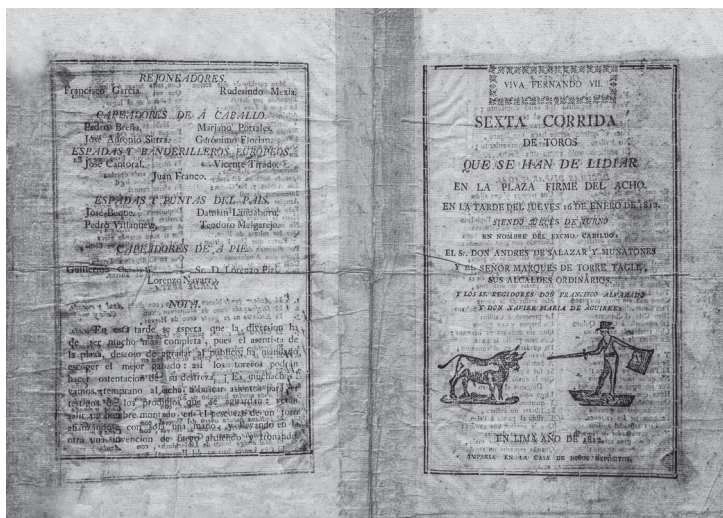 REJONEADORES.
Francisco Garcia. Rudesindo Mexia.
CAPEADORES DE Á CABALLO.
Pedro Breña. Mariano Portales.
José Antonio Sierra. Gerónimo Florian.
ESPADAS Y BANDERILLEROS EUROPEOS.
José Cantoral. Vicente Tirado.
Juan Franco.
ESPADAS Y PUNTAS DEL PAIS.
José Beque. Damian Landaburu.
Pedro Villanueva. Teodoro Melgarejo.
CAPEADORES DE A PIE.
Guillermo Sr. D. Lorenzo
Lorenzo Navarro.
NOTA.
En esta tarde se espera que la diversion ha
de ser mucho mas completa, pues el asentista de
la plaza, deseoso de agradar al público, ha mandado
escoger el mejor ganado: asi los toreros podrán
hacer ostentacion de su destreza. ¡Ea, muchachas!
vamos temprano al acho, á buscar asientos para ser
testigos de los prodigios que se aguardan: verán
salir un hombre montado en el pescuezo de un toro
afianzandose con una mano, y llevando en la
otra una invencion de fuego ardiendo y tronando
VIVA FERNANDO VII.
SEXTA CORRIDA
DE TOROS
QUE SE HAN DE LIDIAR
EN LA PLAZA FIRME DEL ACHO.
EN LA TARDE DEL JUEVES 16 DE ENERO DE 1812.
SIENDO JUECES DE TURNO
EN NOMBRE DEL EXCMO. CABILDO,
EL Sr. DON ANDRES DE SALAZAR Y MUÑATONES
Y EL SEÑOR MARQUES DE TORRE TAGLE,
SUS ALCALDES ORDINARIOS.
Y LOS SS. REGIDORES DON FRANCISCO ALVARADO
Y DON XAVIER MARIA DE AGUIRRE.
EN LIMA AÑO DE 1812.
IMPRESA EN LA CASA DE NIÑOS EXPÓSITOS.